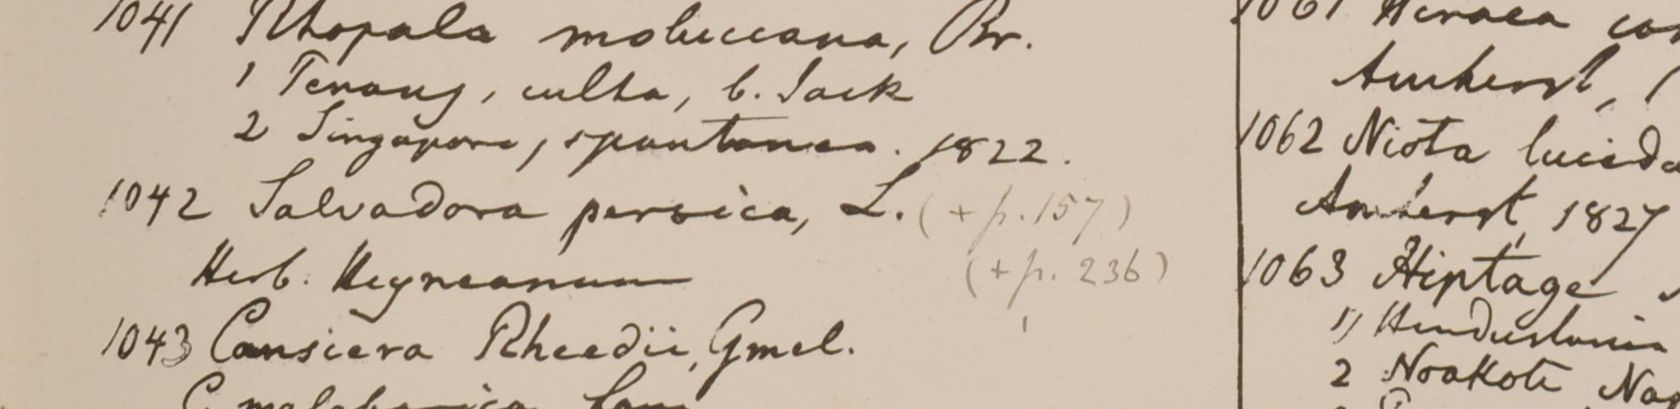 1041 Rhopala moluccana, Br.
1 Penang, culta, b. Jack
2 Singapore, spontanea. 1822.
1042 Salvadora persica, L. (+ p. 157)
Herb. Heyneanum (+ p. 236)
1043 Cansiera Rheedii, Gmel.
C. malabarica Lam
1061 Hiraea
Amherst,
1062 Niota lucida
Amherst, 1827
1063 Hiptage
1) Hindustania
2 Noakote